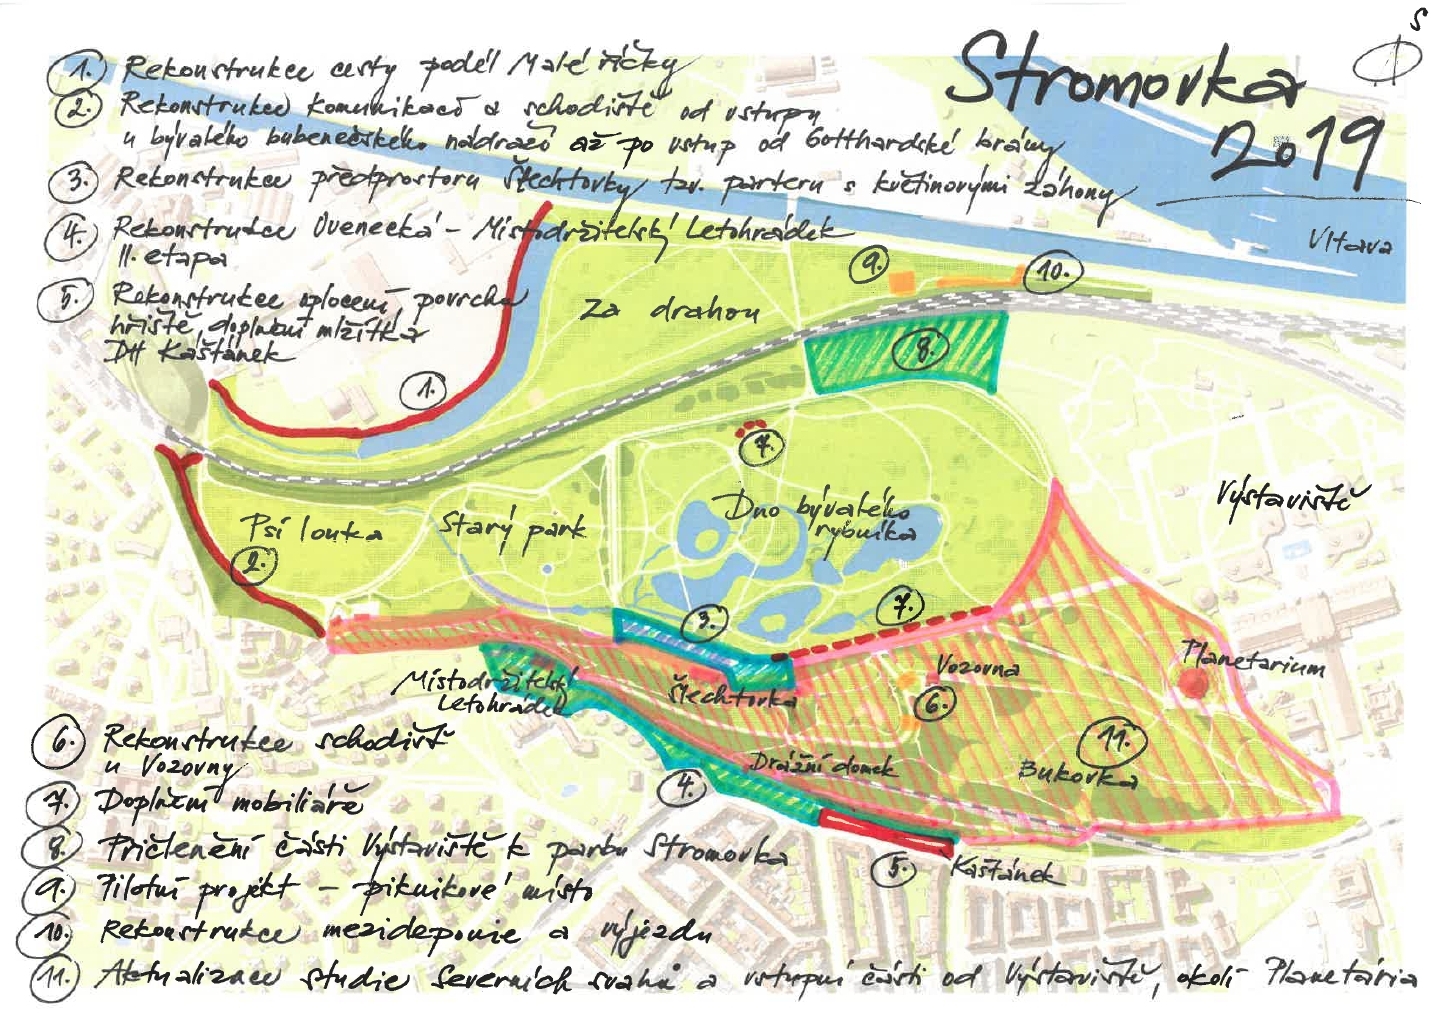 S
Stromovka
2019
1. Rekonstrukce cesty podél Malé říčky
2. Rekonstrukce komunikací a schodiště od vstupu
u bývalého bubenečského nádraží až po vstup od Gotthardské brány
3. Rekonstrukce předprostoru Šlechtovky tzv. parteru s květinovými záhony
4. Rekonstrukce Ovenecká - Místodržitelský Letohrádek
II. etapa
5. Rekonstrukce oplocení, povrchu
hřiště, doplnění mlžítka
DH Kaštánek
Vltava
9.
10.
Za drahou
8.
1.
7.
Dno bývalého
rybníka
Výstaviště
Psí louka
Starý park
2.
3.
7.
Místodržitelský
Letohrádek
Šlechtovka
Vozovna
6.
Planetarium
11.
Bukovka
Drážní domek
4.
5.
Kaštánek
6. Rekonstrukce schodišť
u Vozovny
7. Doplnění mobiliáře
8. Přičlenění části Výstaviště k parku Stromovka
9. Pilotní projekt - piknikové místo
10. Rekonstrukce mezideponie a výjezdu
11. Aktualizace studie Severních svahů a vstupní části od Výstaviště, okolí Planetária